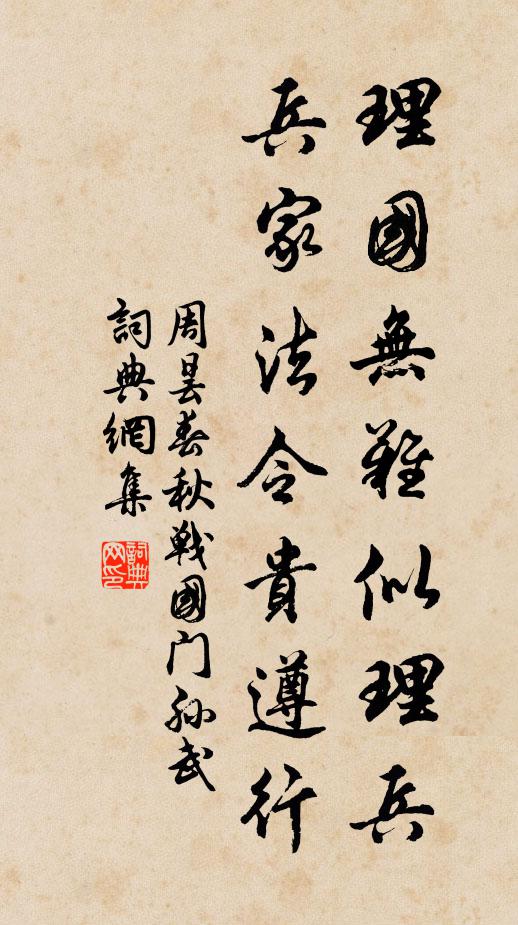 理國無難似理兵
兵家法令貴遵行
周曇春秋戰國门孙武
詞典網集
詞典网印